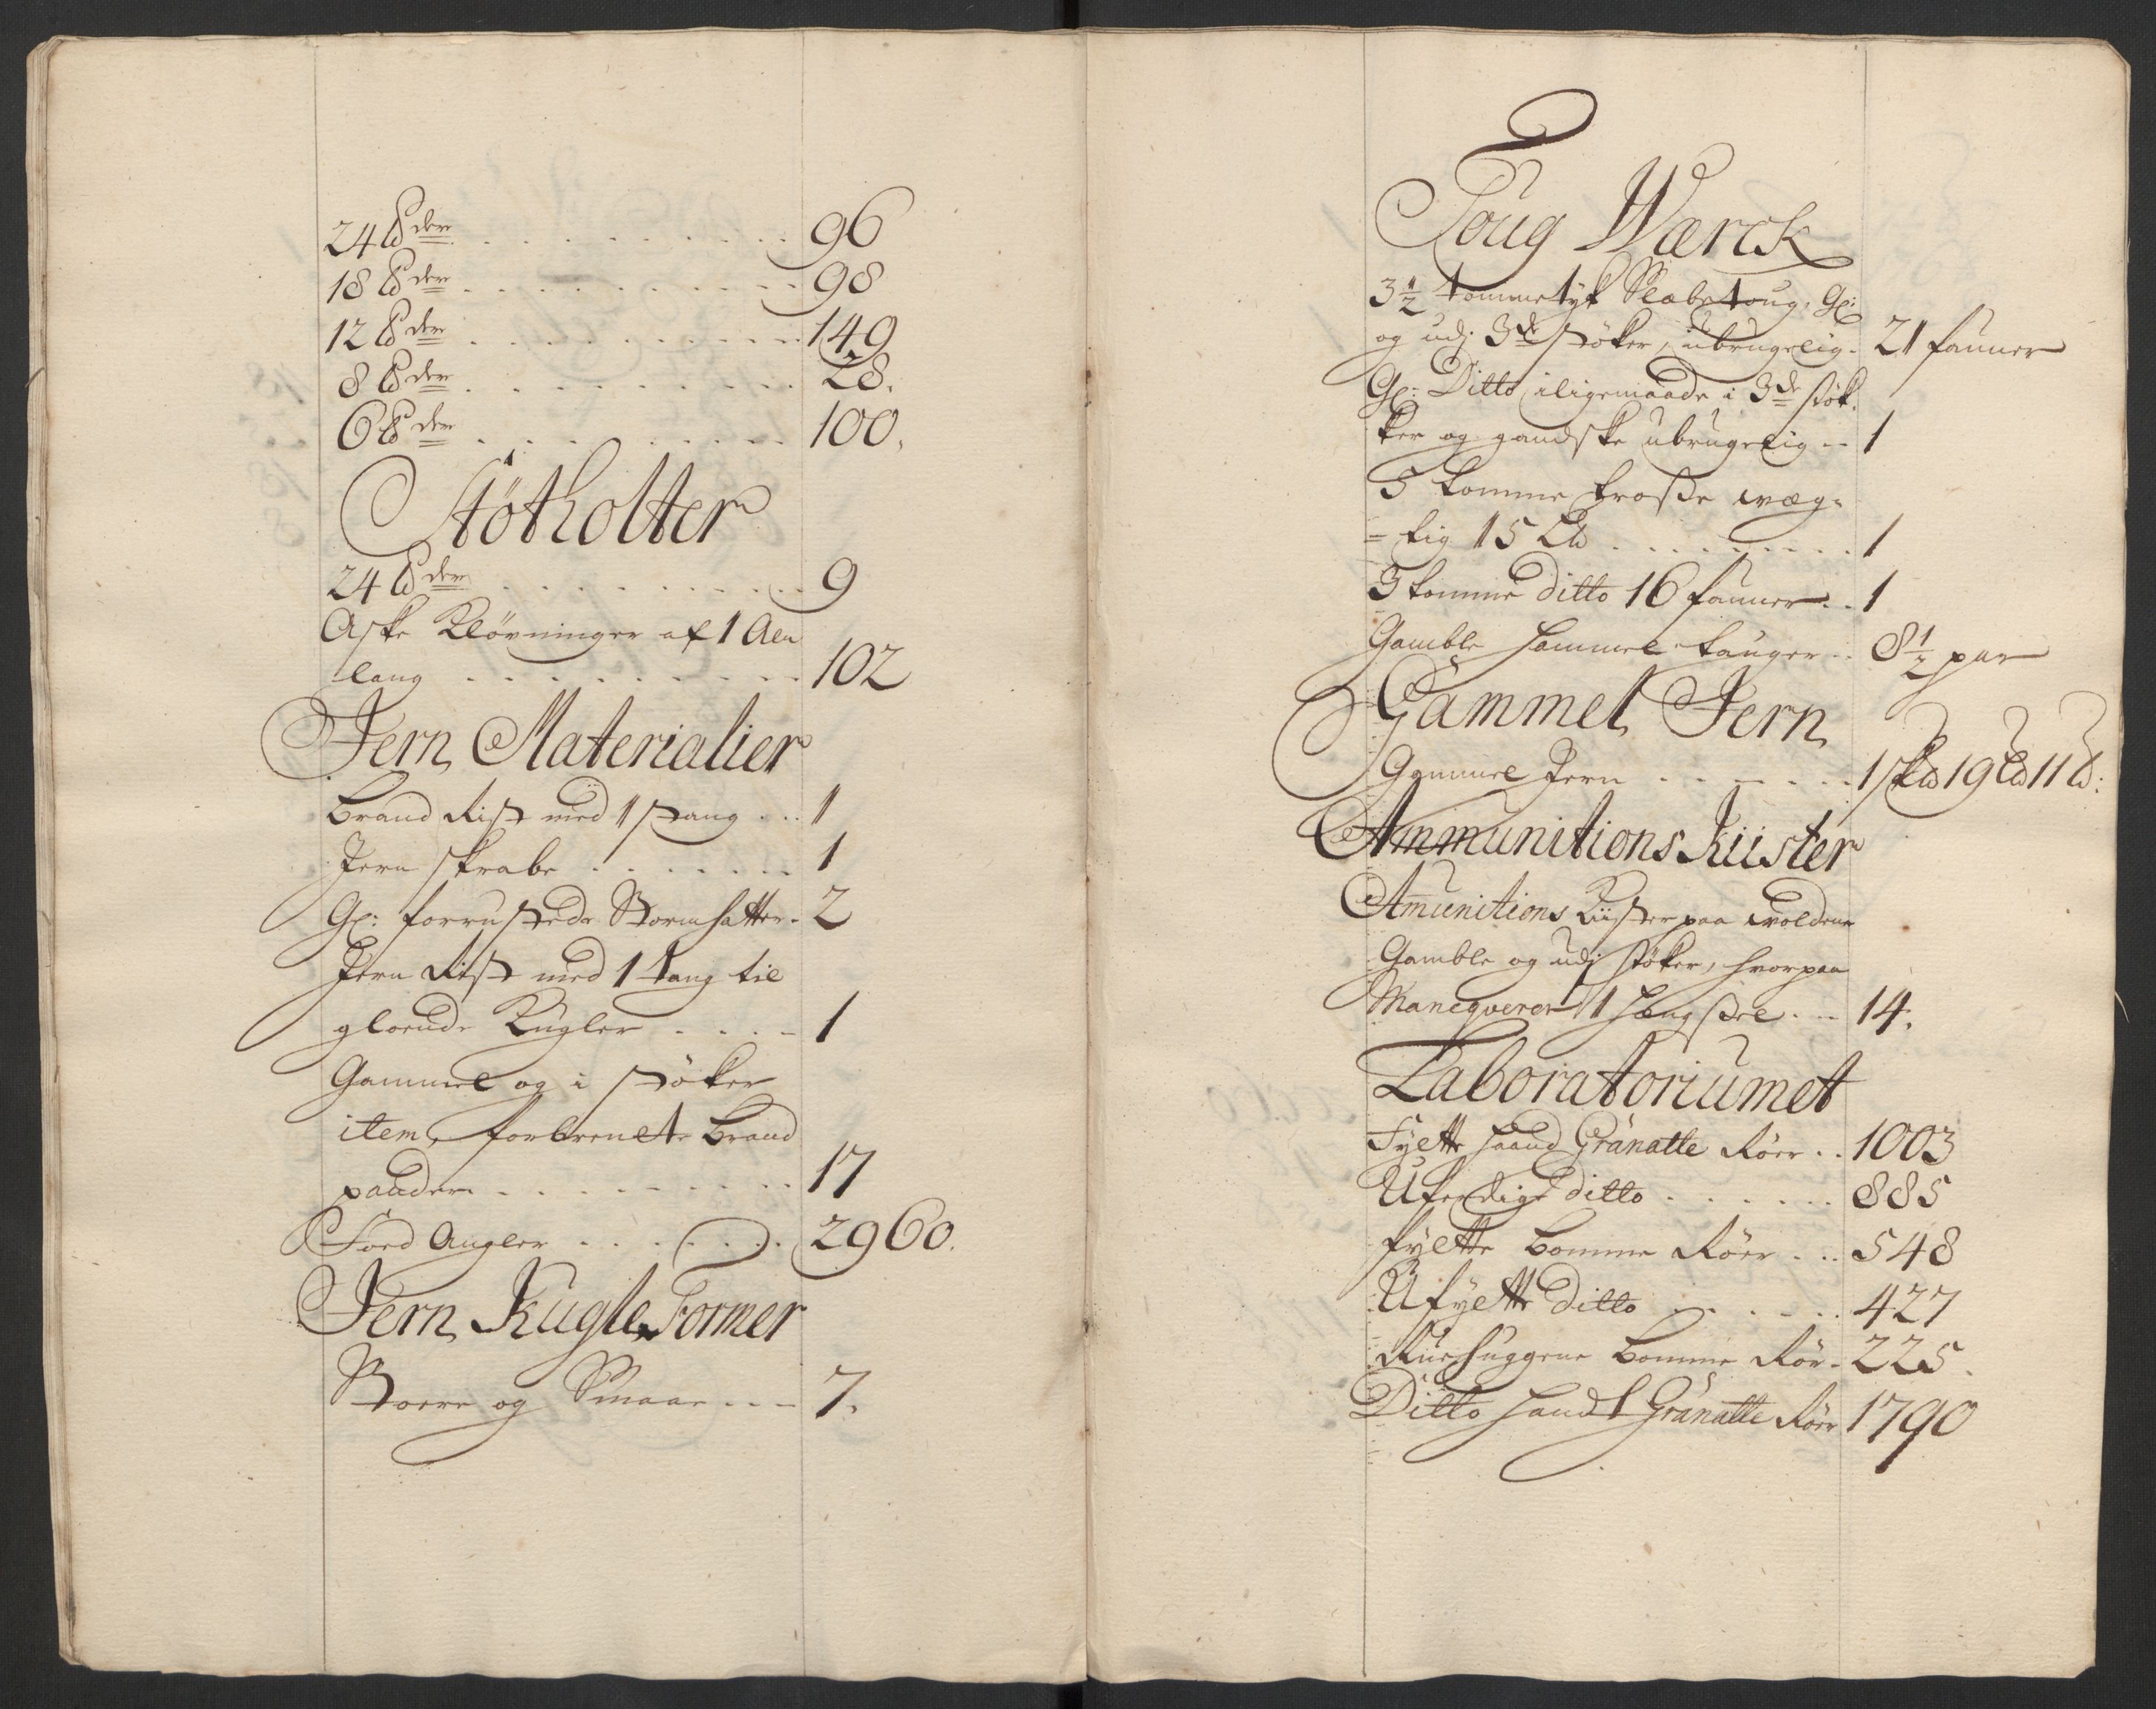 24 ℔der . . . . . . . . . . 96
18 ℔der . . . . . . . . . . 98
12 ℔der . . . . . . . . . . 149
8 ℔der . . . . . . . . . . 28.
6 ℔der . . . . . . . . . . 100.
Støtholter
24 ℔der . . . . . . . . . . 9
Aske Kløvninger af 1 Alen
lang . . . . . . . . . . 102
Jern Materialier
Brand Rist med 1 Stang . . . 1
Jern skrabe . . . . . . . 1
Gl: forrustede Stormhatter - 2
Jern Rist med 1 tang til
gloende Kugler . . . . - 1
Gammel og i støker
item forbrente Brand
pander . . . . . . . . . . 17
Foed Angler . . . . . . . 2960.
Jern Kugle Former
Stoere og Smaae . . . - 7.
Toug Wærck
3½ tomme tyk Slæbetoug, Gl:
og udj 3de støker, ubrugelig - 21 faune
Gl: Ditto iligemaade i 3de støk
ker og gandske ubrugelig -- 1
5 tomme troße wæg-
= tig 15 L℔ . . . . . . . . 1
3 tomme ditto 16 faune . . 1
Gamble hammel tauger . . 8½ par
Gammel Jern
Gammel Jern . . . . . . . 1 sk℔ 19 L℔ 11 ℔:
Ammunitions Kiister
Amunitions Kiister paa wolden
Gamble og udj støker, hvorpaa
Maneqverer 1 Hengsel . . - 14.
Laboratoriumet
Fyette Haand Granatte Röer . . 1003
Uferdige ditto . . . . . . . 885
fyette Bomme Röer . . . 548
Ufyette ditto . . . . . . 427
Ruehuggene Bomme Rör - 225.
Ditto Hand Granatte Röer 1790